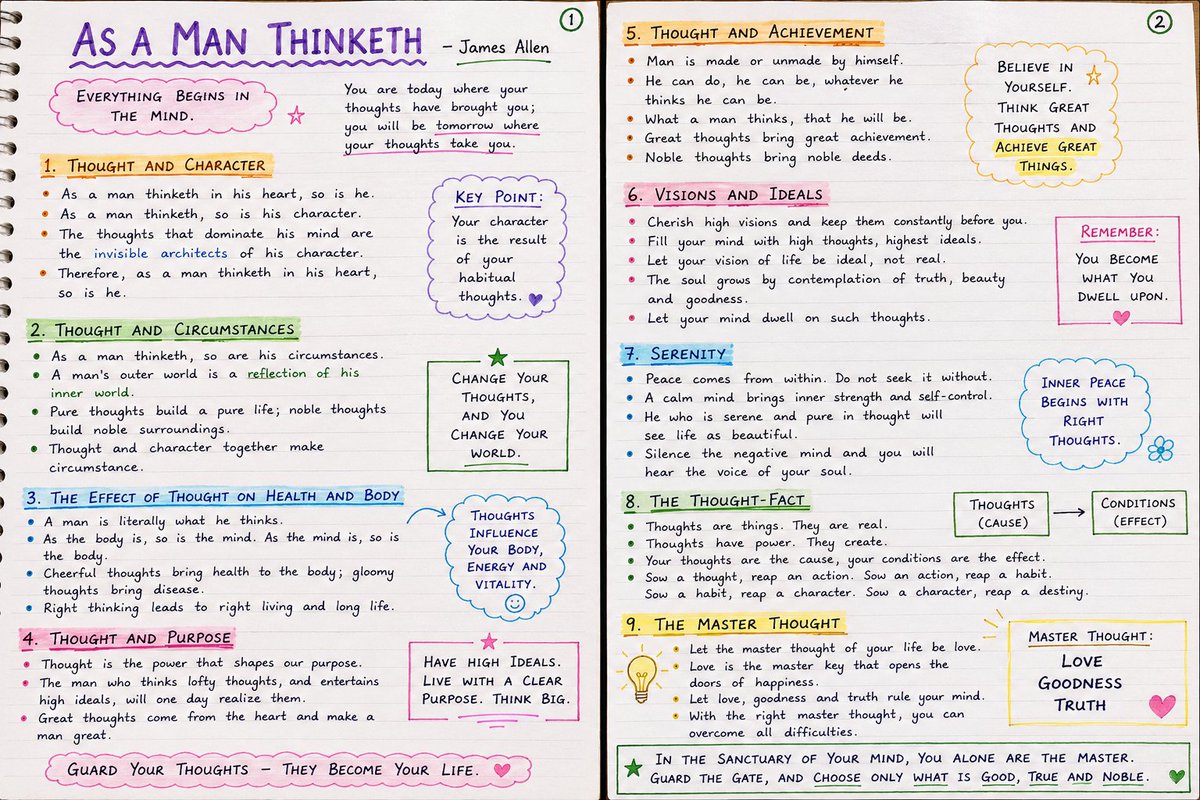 1
AS A MAN THINKETH – James Allen
EVERYTHING BEGINS IN
THE MIND.
You are today where your
thoughts have brought you;
you will be tomorrow where
your thoughts take you.
1. THOUGHT AND CHARACTER
• As a man thinketh in his heart, so is he.
• As a man thinketh, so is his character.
• The thoughts that dominate his mind are
the invisible architects of his character.
• Therefore, as a man thinketh in his heart,
so is he.
KEY POINT:
Your character
is the result
of your
habitual
thoughts.
2. THOUGHT AND CIRCUMSTANCES
• As a man thinketh, so are his circumstances.
• A man's outer world is a reflection of his
inner world.
• Pure thoughts build a pure life; noble thoughts
build noble surroundings.
• Thought and character together make
circumstance.
CHANGE YOUR
THOUGHTS,
AND YOU
CHANGE YOUR
WORLD.
3. THE EFFECT OF THOUGHT ON HEALTH AND BODY
• A man is literally what he thinks.
• As the body is, so is the mind. As the mind is, so is
the body.
• Cheerful thoughts bring health to the body; gloomy
thoughts bring disease.
• Right thinking leads to right living and long life.
THOUGHTS
INFLUENCE
YOUR BODY,
ENERGY AND
VITALITY.
4. THOUGHT AND PURPOSE
• Thought is the power that shapes our purpose.
• The man who thinks lofty thoughts, and entertains
high ideals, will one day realize them.
• Great thoughts come from the heart and make a
man great.
HAVE HIGH IDEALS.
LIVE WITH A CLEAR
PURPOSE. THINK BIG.
GUARD YOUR THOUGHTS – THEY BECOME YOUR LIFE.
2
5. THOUGHT AND ACHIEVEMENT
• Man is made or unmade by himself.
• He can do, he can be, whatever he
thinks he can be.
• What a man thinks, that he will be.
• Great thoughts bring great achievement.
• Noble thoughts bring noble deeds.
BELIEVE IN
YOURSELF.
THINK GREAT
THOUGHTS AND
ACHIEVE GREAT
THINGS.
6. VISIONS AND IDEALS
• Cherish high visions and keep them constantly before you.
• Fill your mind with high thoughts, highest ideals.
• Let your vision of life be ideal, not real.
• The soul grows by contemplation of truth, beauty
and goodness.
• Let your mind dwell on such thoughts.
REMEMBER:
YOU BECOME
WHAT YOU
DWELL UPON.
7. SERENITY
• Peace comes from within. Do not seek it without.
• A calm mind brings inner strength and self-control.
• He who is serene and pure in thought will
see life as beautiful.
• Silence the negative mind and you will
hear the voice of your soul.
INNER PEACE
BEGINS WITH
RIGHT
THOUGHTS.
8. THE THOUGHT-FACT
• Thoughts are things. They are real.
• Thoughts have power. They create.
• Your thoughts are the cause, your conditions are the effect.
• Sow a thought, reap an action. Sow an action, reap a habit.
Sow a habit, reap a character. Sow a character, reap a destiny.
THOUGHTS
(CAUSE)
→
CONDITIONS
(EFFECT)
9. THE MASTER THOUGHT
• Let the master thought of your life be love.
• Love is the master key that opens the
doors of happiness.
• Let love, goodness and truth rule your mind.
• With the right master thought, you can
overcome all difficulties.
MASTER THOUGHT:
LOVE
GOODNESS
TRUTH
IN THE SANCTUARY OF YOUR MIND, YOU ALONE ARE THE MASTER.
GUARD THE GATE, AND CHOOSE ONLY WHAT IS GOOD, TRUE AND NOBLE.